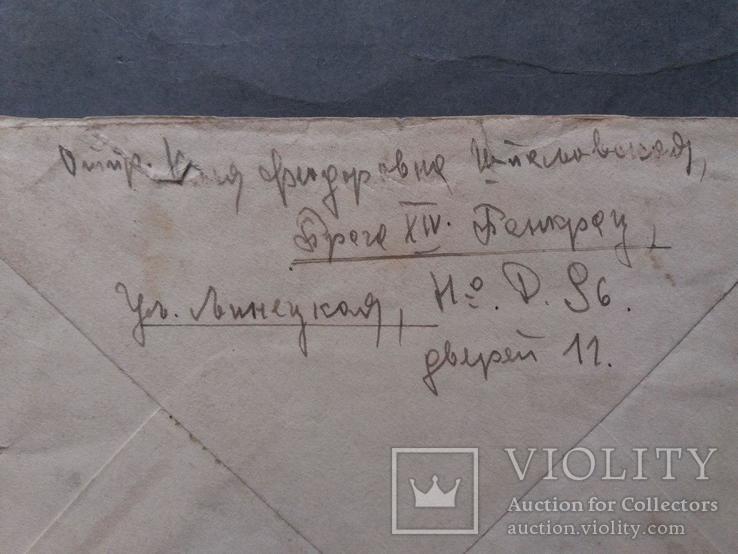 Отпр. Федоровна
Прага XIV. Панкрац,
Ул. Линецкая, No. D. 96.
дверей 11.
VIOLITY
Auction for Collectors
auction.violity.com